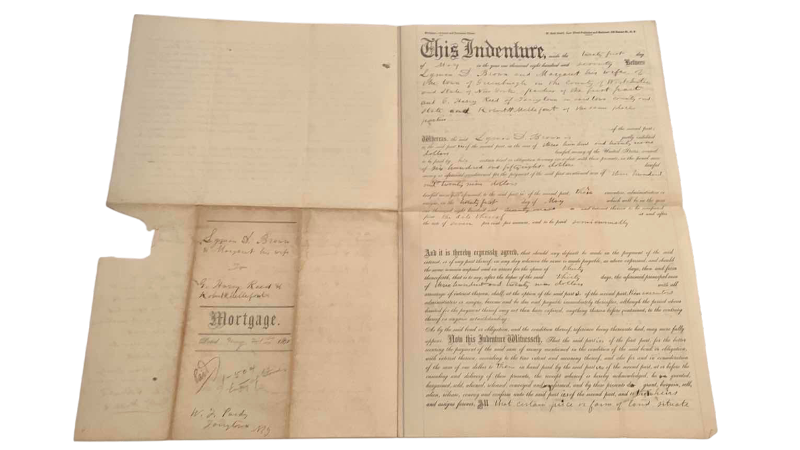 Lyman D. Brown
& Margaret his wife
To
G. Harry Reed &
Mortgage.
Dated May
W. F.
Tarrytown N.Y.
This Indenture, made the twenty first day
of May in the year one thousand eight hundred and seventy Between
Lyman D. Brown and Margaret his wife of
the town of Greenburgh in the County of Westchester
and State of New York parties of the first part
and G. Harry Reed of Tarrytown in said town county and
State and of the same place
parties of the second part:
Whereas, the said Lyman D. Brown is justly indebted
to the said parties of the second part in the sum of three hundred and twenty nine
dollars lawful money of the United States, secured
to be paid by his certain bond or obligation bearing even date with these presents, in the penal sum
of six hundred and fifty eight dollars lawful
money as aforesaid conditioned for the payment of the said first mentioned sum of three hundred
and twenty nine dollars
lawful money aforesaid, to the said parties of the second part, their executors, administrators or
assigns, on the twenty first day of May which will be in the year
one thousand eight hundred and seventy and interest thereon to be computed
from the date thereof at and after
the rate of seven per cent. per annum, and to be paid semi annually
And it is hereby expressly agreed, that should any default be made in the payment of the said
interest, or of any part thereof, on any day whereon the same is made payable, as above expressed, and should
the same remain unpaid and in arrear for the space of thirty days, then and from
thenceforth, that is to say, after the lapse of the said thirty days, the aforesaid principal sum
of three hundred and twenty nine dollars with all
arrearage of interest thereon, shall, at the option of the said parties of the second part, their executors
administrators or assigns, become and be due and payable immediately thereafter, although the period above
limited for the payment thereof may not then have expired, anything therein before contained, to the contrary
thereof in anywise notwithstanding.
As by the said bond or obligation, and the condition thereof, reference being thereunto had, may more fully
appear. Now this Indenture Witnesseth, That the said parties of the first part, for the better
securing the payment of the said sum of money mentioned in the condition of the said bond or obligation,
with interest thereon, according to the true intent and meaning thereof, and also for and in consideration
of the sum of one dollar to them in hand paid by the said parties of the second part, at or before the
ensealing and delivery of these presents, the receipt whereof is hereby acknowledged, have granted,
bargained, sold, aliened, released, conveyed and confirmed, and by these presents do grant, bargain, sell,
alien, release, convey and confirm unto the said parties of the second part, and to their heirs
and assigns forever, All that certain piece or farm of land situate